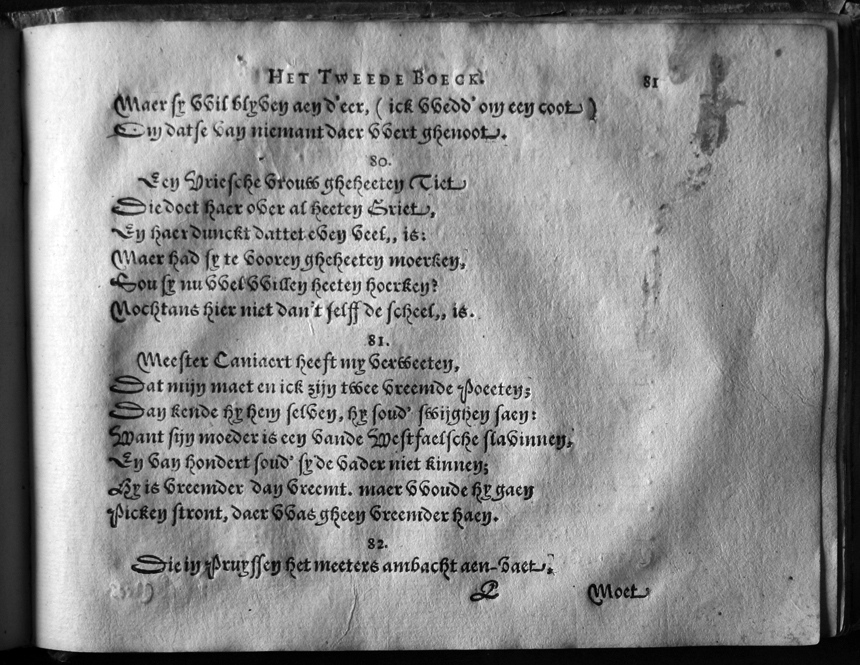 HET TWEEDE BOECK. 81
Maer sy VVil blyven aen d'eer, ( ick VVedd' om een coot )
Om datse van niemant daer VVert ghenoot.
80.
Een Vriesche Vrouw gheheeten Tiet
Die doet haer over al heeten Griet,
En haer dunckt dattet even veel,, is:
Maer had sy te vooren gheheeten moerken,
Sou sy nu VVel VVillen heeten hoerken?
Nochtans hier niet dan't selff de scheel,, is.
81.
Meester Caniaert heeft my verweeten,
Dat mijn maet en ick zijn twee vreemde Poeeten;
Dan kende hy hem selven, hy soud' swijghen saen:
Want sijn moeder is een vande Westfaelsche slavinnen,
En van hondert soud' sy de vader niet kinnen;
Hy is vreemder dan vreemt. maer VVoude hy gaen
Picken stront, daer VVas gheen vreemder haen.
82.
Die in Pruyssen het meeters ambacht aen-vaet,
Q Moet